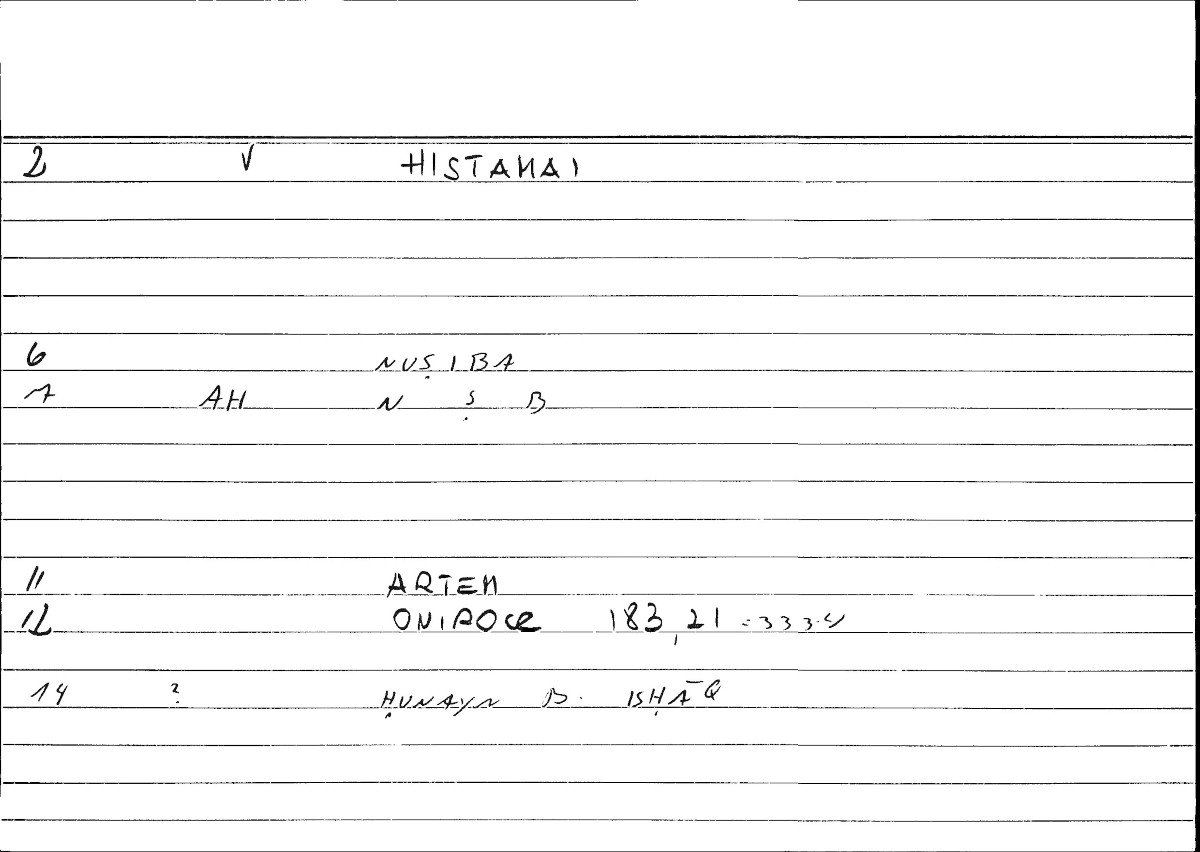 2 V HISTAMAI
6 NUṢIBA
7 AH N Ṣ B
11 ARTEM
12 ONIROCR 183,21 = 333.4
14 ? ḤUNAYN B. ISḤĀQ